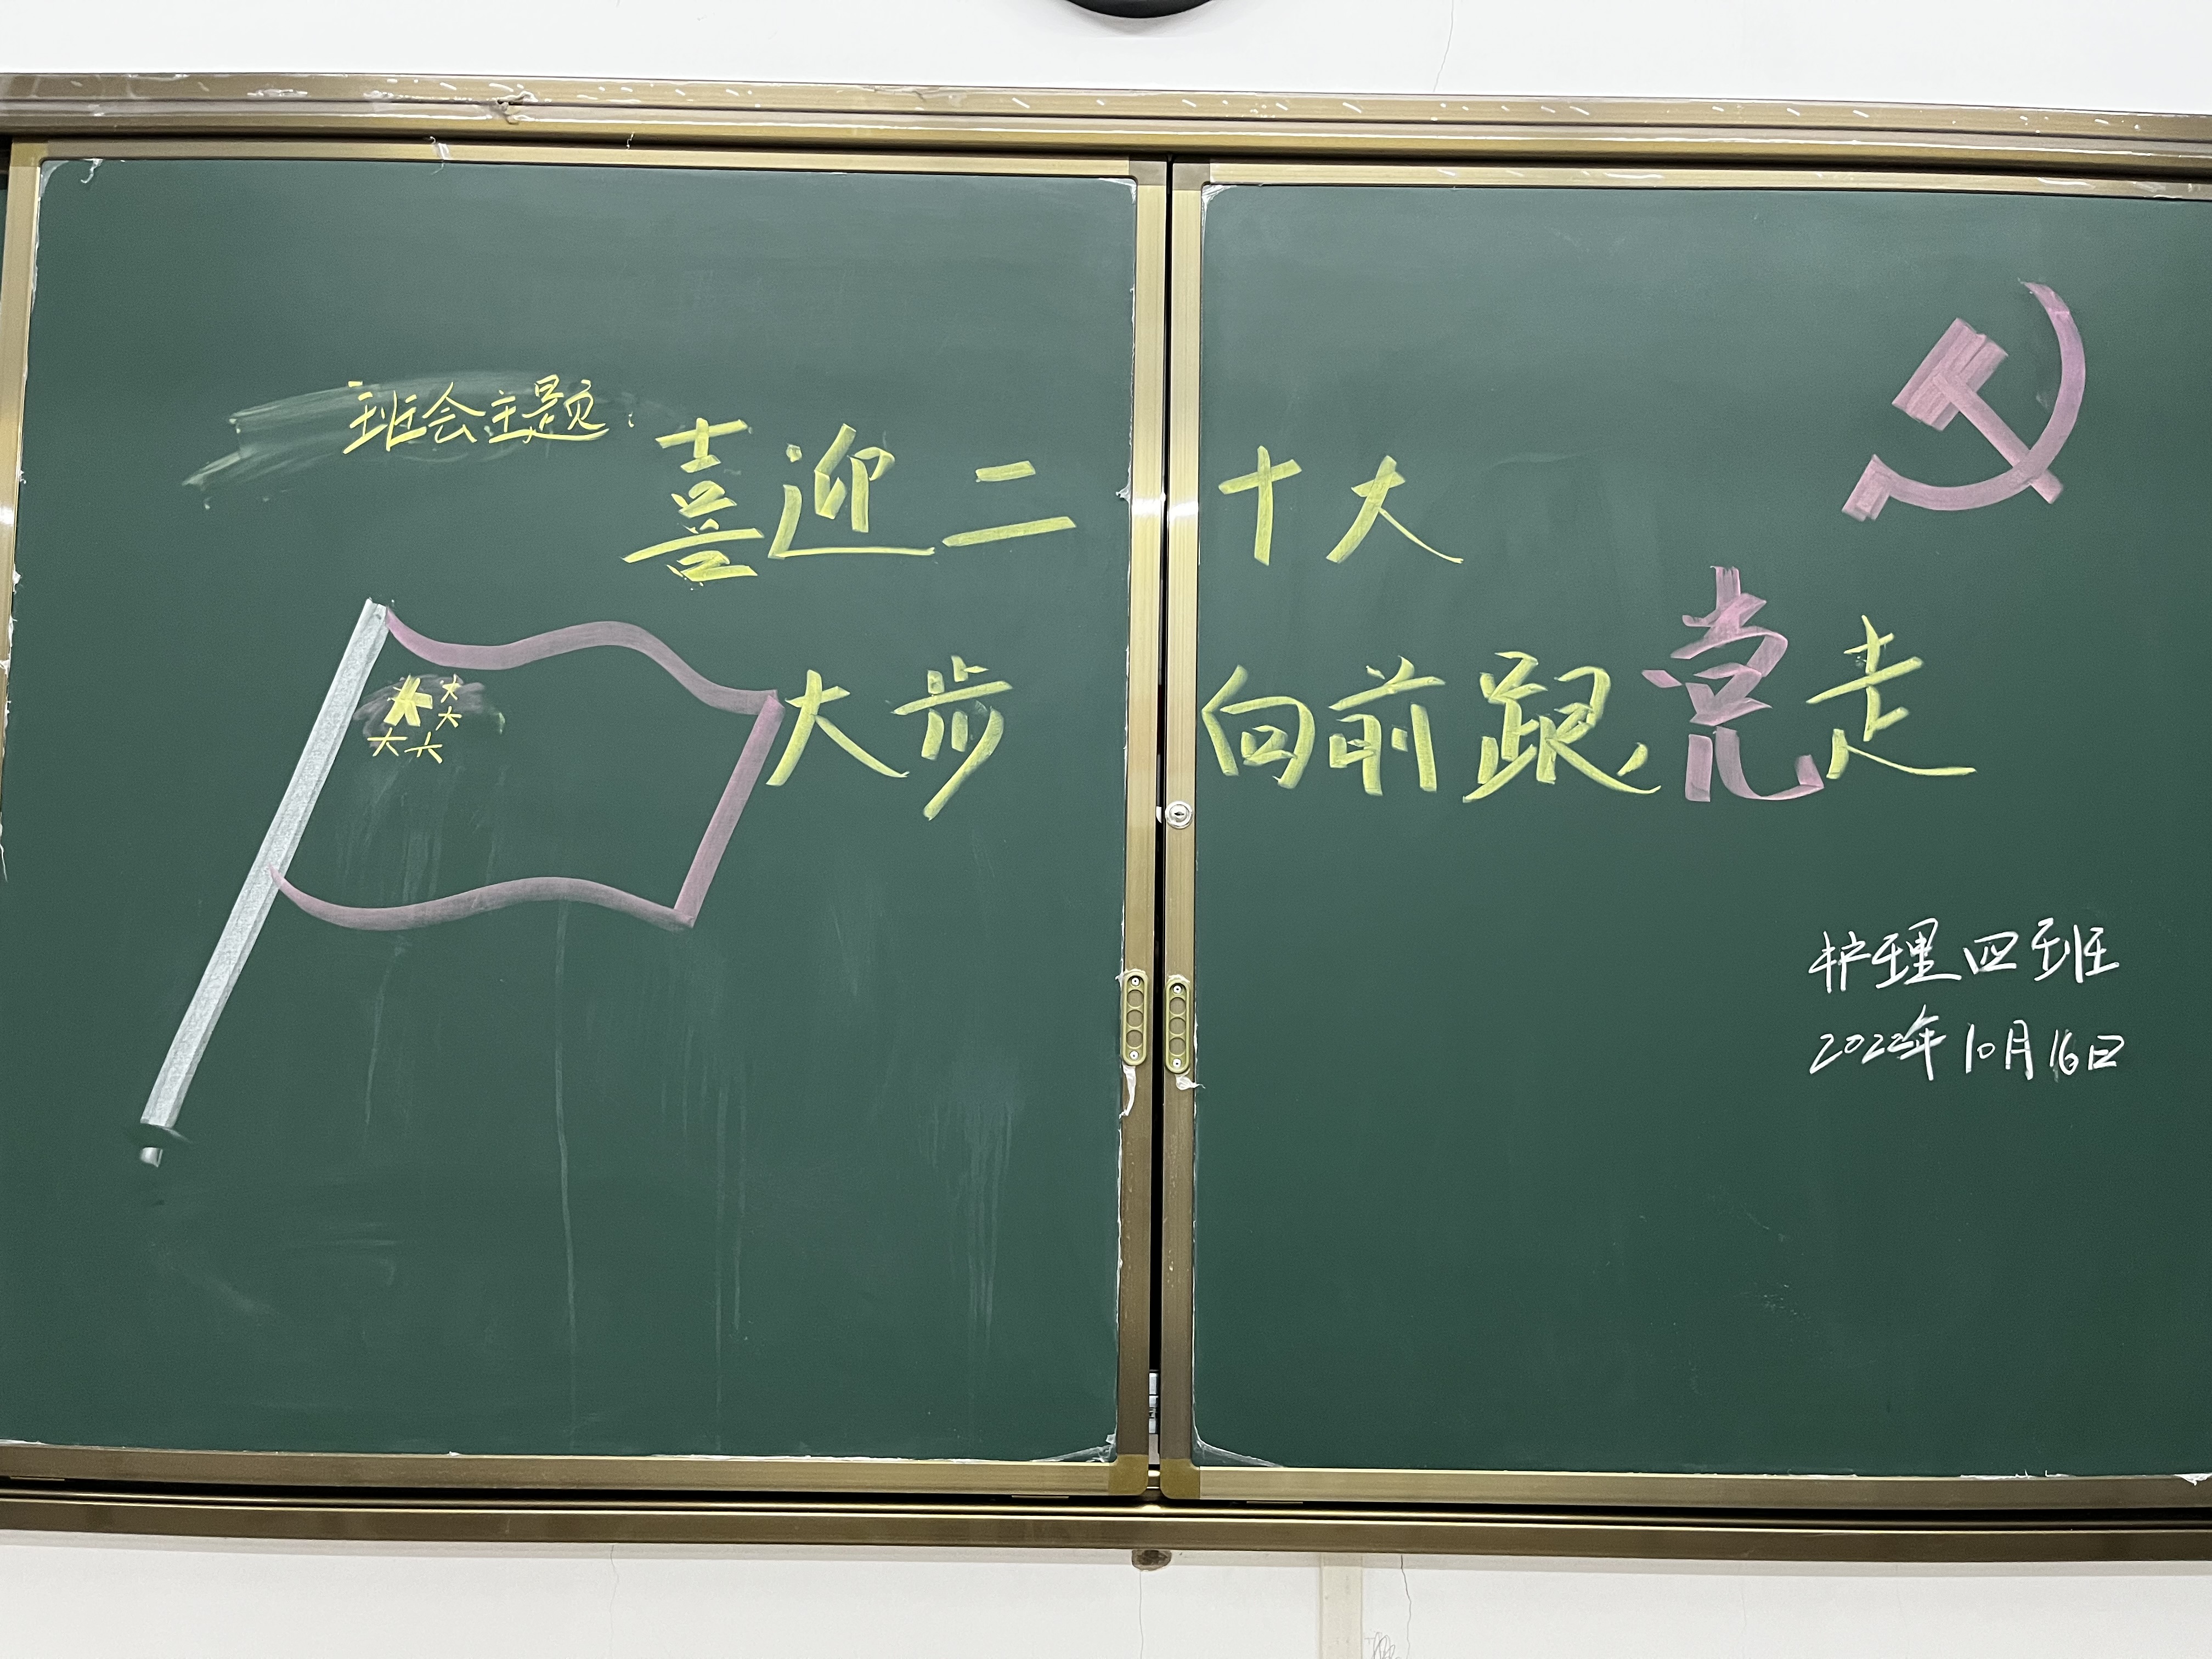 班会主题：
喜迎二十大
大步向前跟党走
护理四班
2022年10月16日